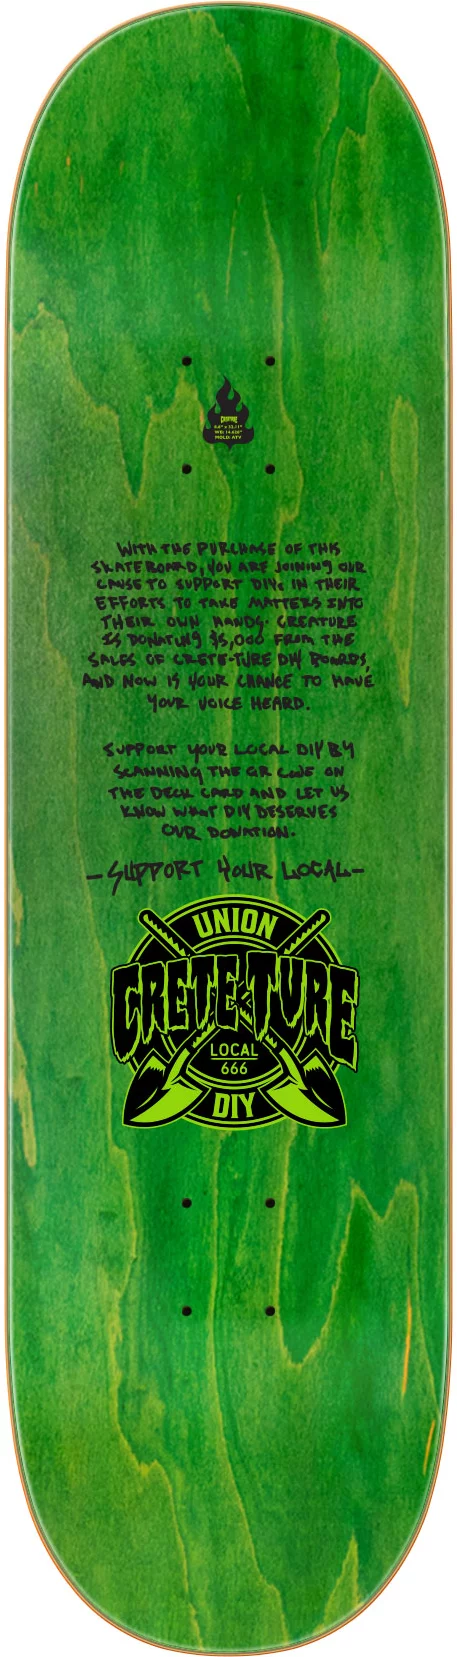 CREATURE
8.6" x 32.11"
WB: 14.626"
MOLD: ATV
WITH THE PURCHASE OF THIS
SKATEBOARD, YOU ARE JOINING OUR
CAUSE TO SUPPORT DIYs IN THEIR
EFFORTS TO TAKE MATTERS INTO
THEIR OWN HANDS. CREATURE
IS DONATING $5,000 FROM THE
SALES OF CRETE-TURE DIY BOARDS,
AND NOW IS YOUR CHANCE TO HAVE
YOUR VOICE HEARD.
SUPPORT YOUR LOCAL DIY BY
SCANNING THE QR CODE ON
THE DECK CARD AND LET US
KNOW WHAT DIY DESERVES
OUR DONATION.
-SUPPORT YOUR LOCAL-
UNION
CRETE-TURE
LOCAL
666
DIY